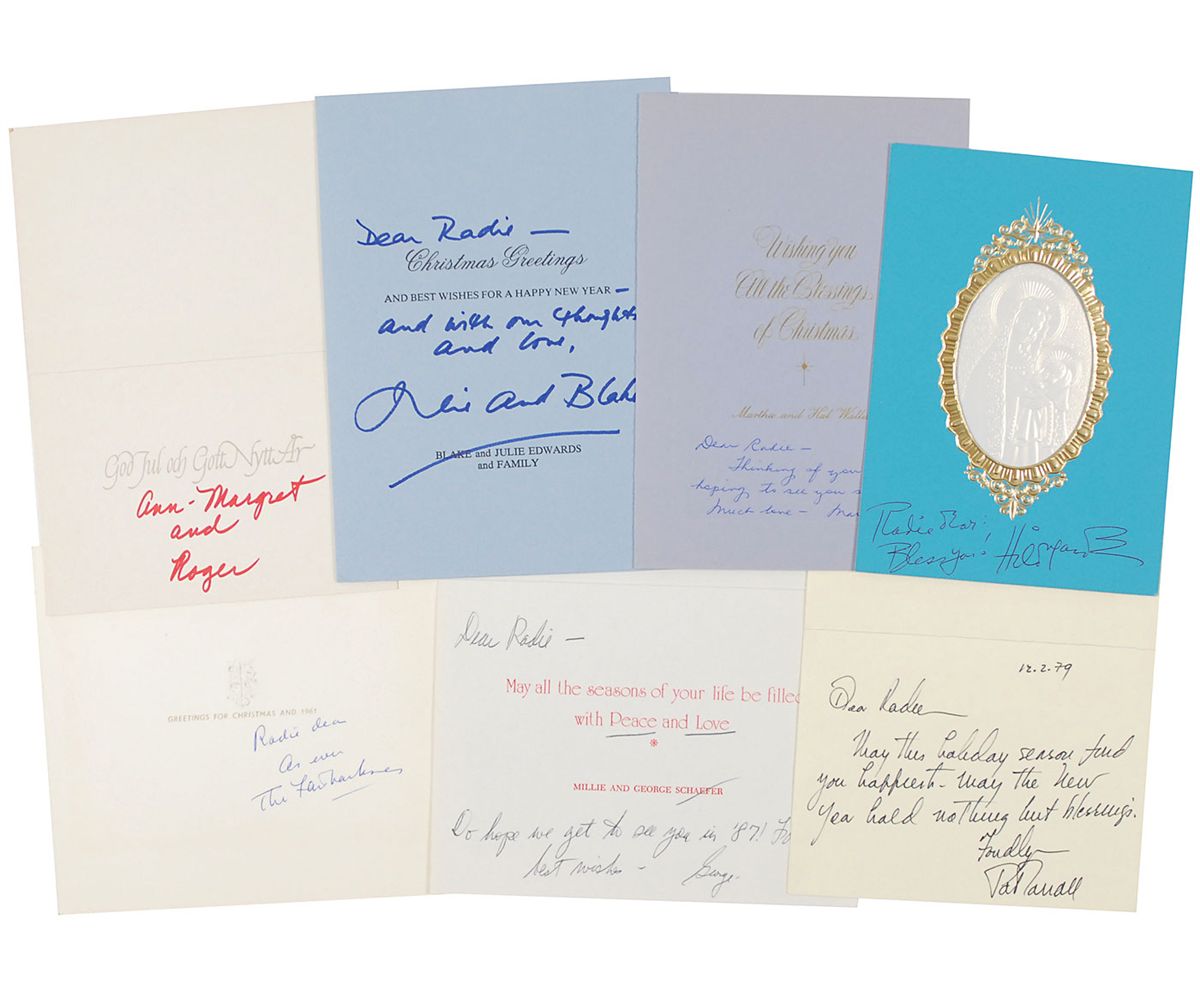 God Jul och Gott Nytt År
Ann-Margret
and
Roger
Dear Radie —
Christmas Greetings
AND BEST WISHES FOR A HAPPY NEW YEAR —
and with our thoughts
and love,
Julie and Blake
BLAKE and JULIE EDWARDS
and FAMILY
Wishing you
All the Blessings
of Christmas
Martha and Hal Wallis
Dear Radie —
Thinking of you
hoping to see you s
Much love — Mar
Radie Dear:
Bless you!
GREETINGS FOR CHRISTMAS AND 1961
Radie dear
As ever
The Fairbankses
Dear Radie —
May all the seasons of your life be filled
with Peace and Love
MILLIE AND GEORGE SCHAEFER
Do hope we get to see you in '87! Fo
best wishes - George.
12.2.79
Dear Radie
May this holiday season find
you happiest - may the new
year hold nothing but blessings.
Fondly